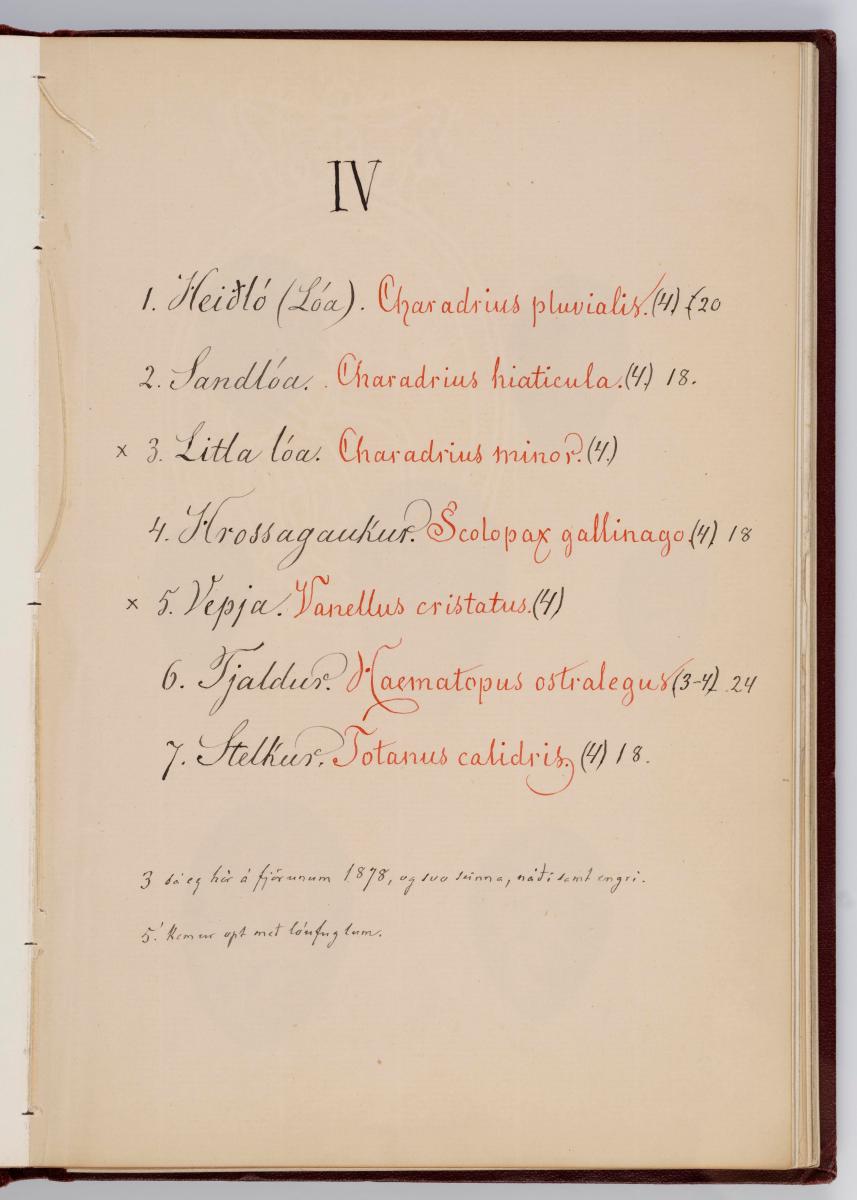 IV
1. Heiðló (Lóa). Charadrius pluvialis. (4) 20
2. Sandlóa. Charadrius hiaticula. (4) 18.
x 3. Litla lóa. Charadrius minor. (4)
4. Hrossagaukur. Scolopax gallinago (4) 18
x 5. Vepja. Vanellus cristatus. (4)
6. Tjaldur. Haematopus ostralegus (3-4) 24
7. Stelkur. Totanus calidris. (4) 18.
3 sá eg hér á fjörunum 1878, og svo seinna, náði samt engri.
5. Kemur opt með lóufuglum.